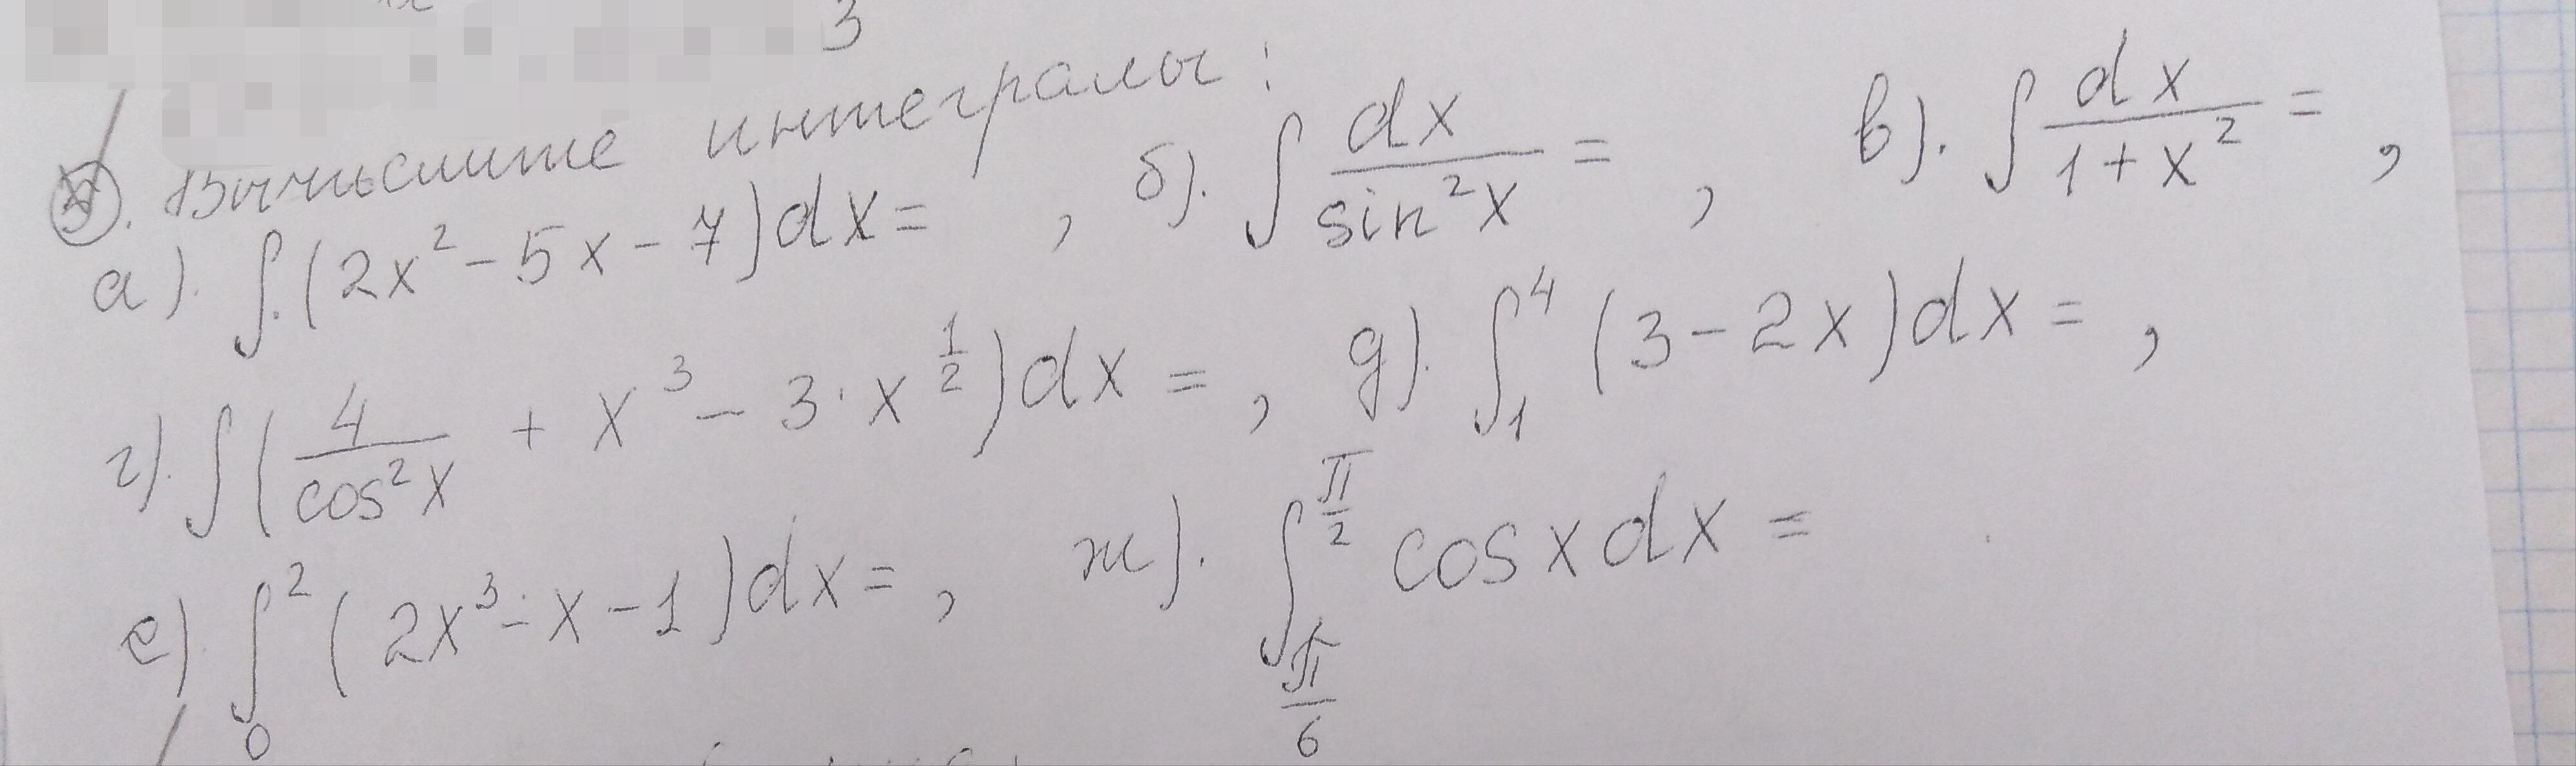 3
Вычислите интегралы:
а). ∫(2x² - 5x - 7)dx= , б). ∫ dx/sin²x = , в). ∫ dx/(1+x²) = ,
г). ∫(4/cos²x + x³ - 3·x^(1/2))dx = , д). ∫₁⁴ (3-2x)dx = ,
е) ∫₀² (2x³-x-1)dx= , ж). ∫_(π/6)^(π/2) cosxdx =